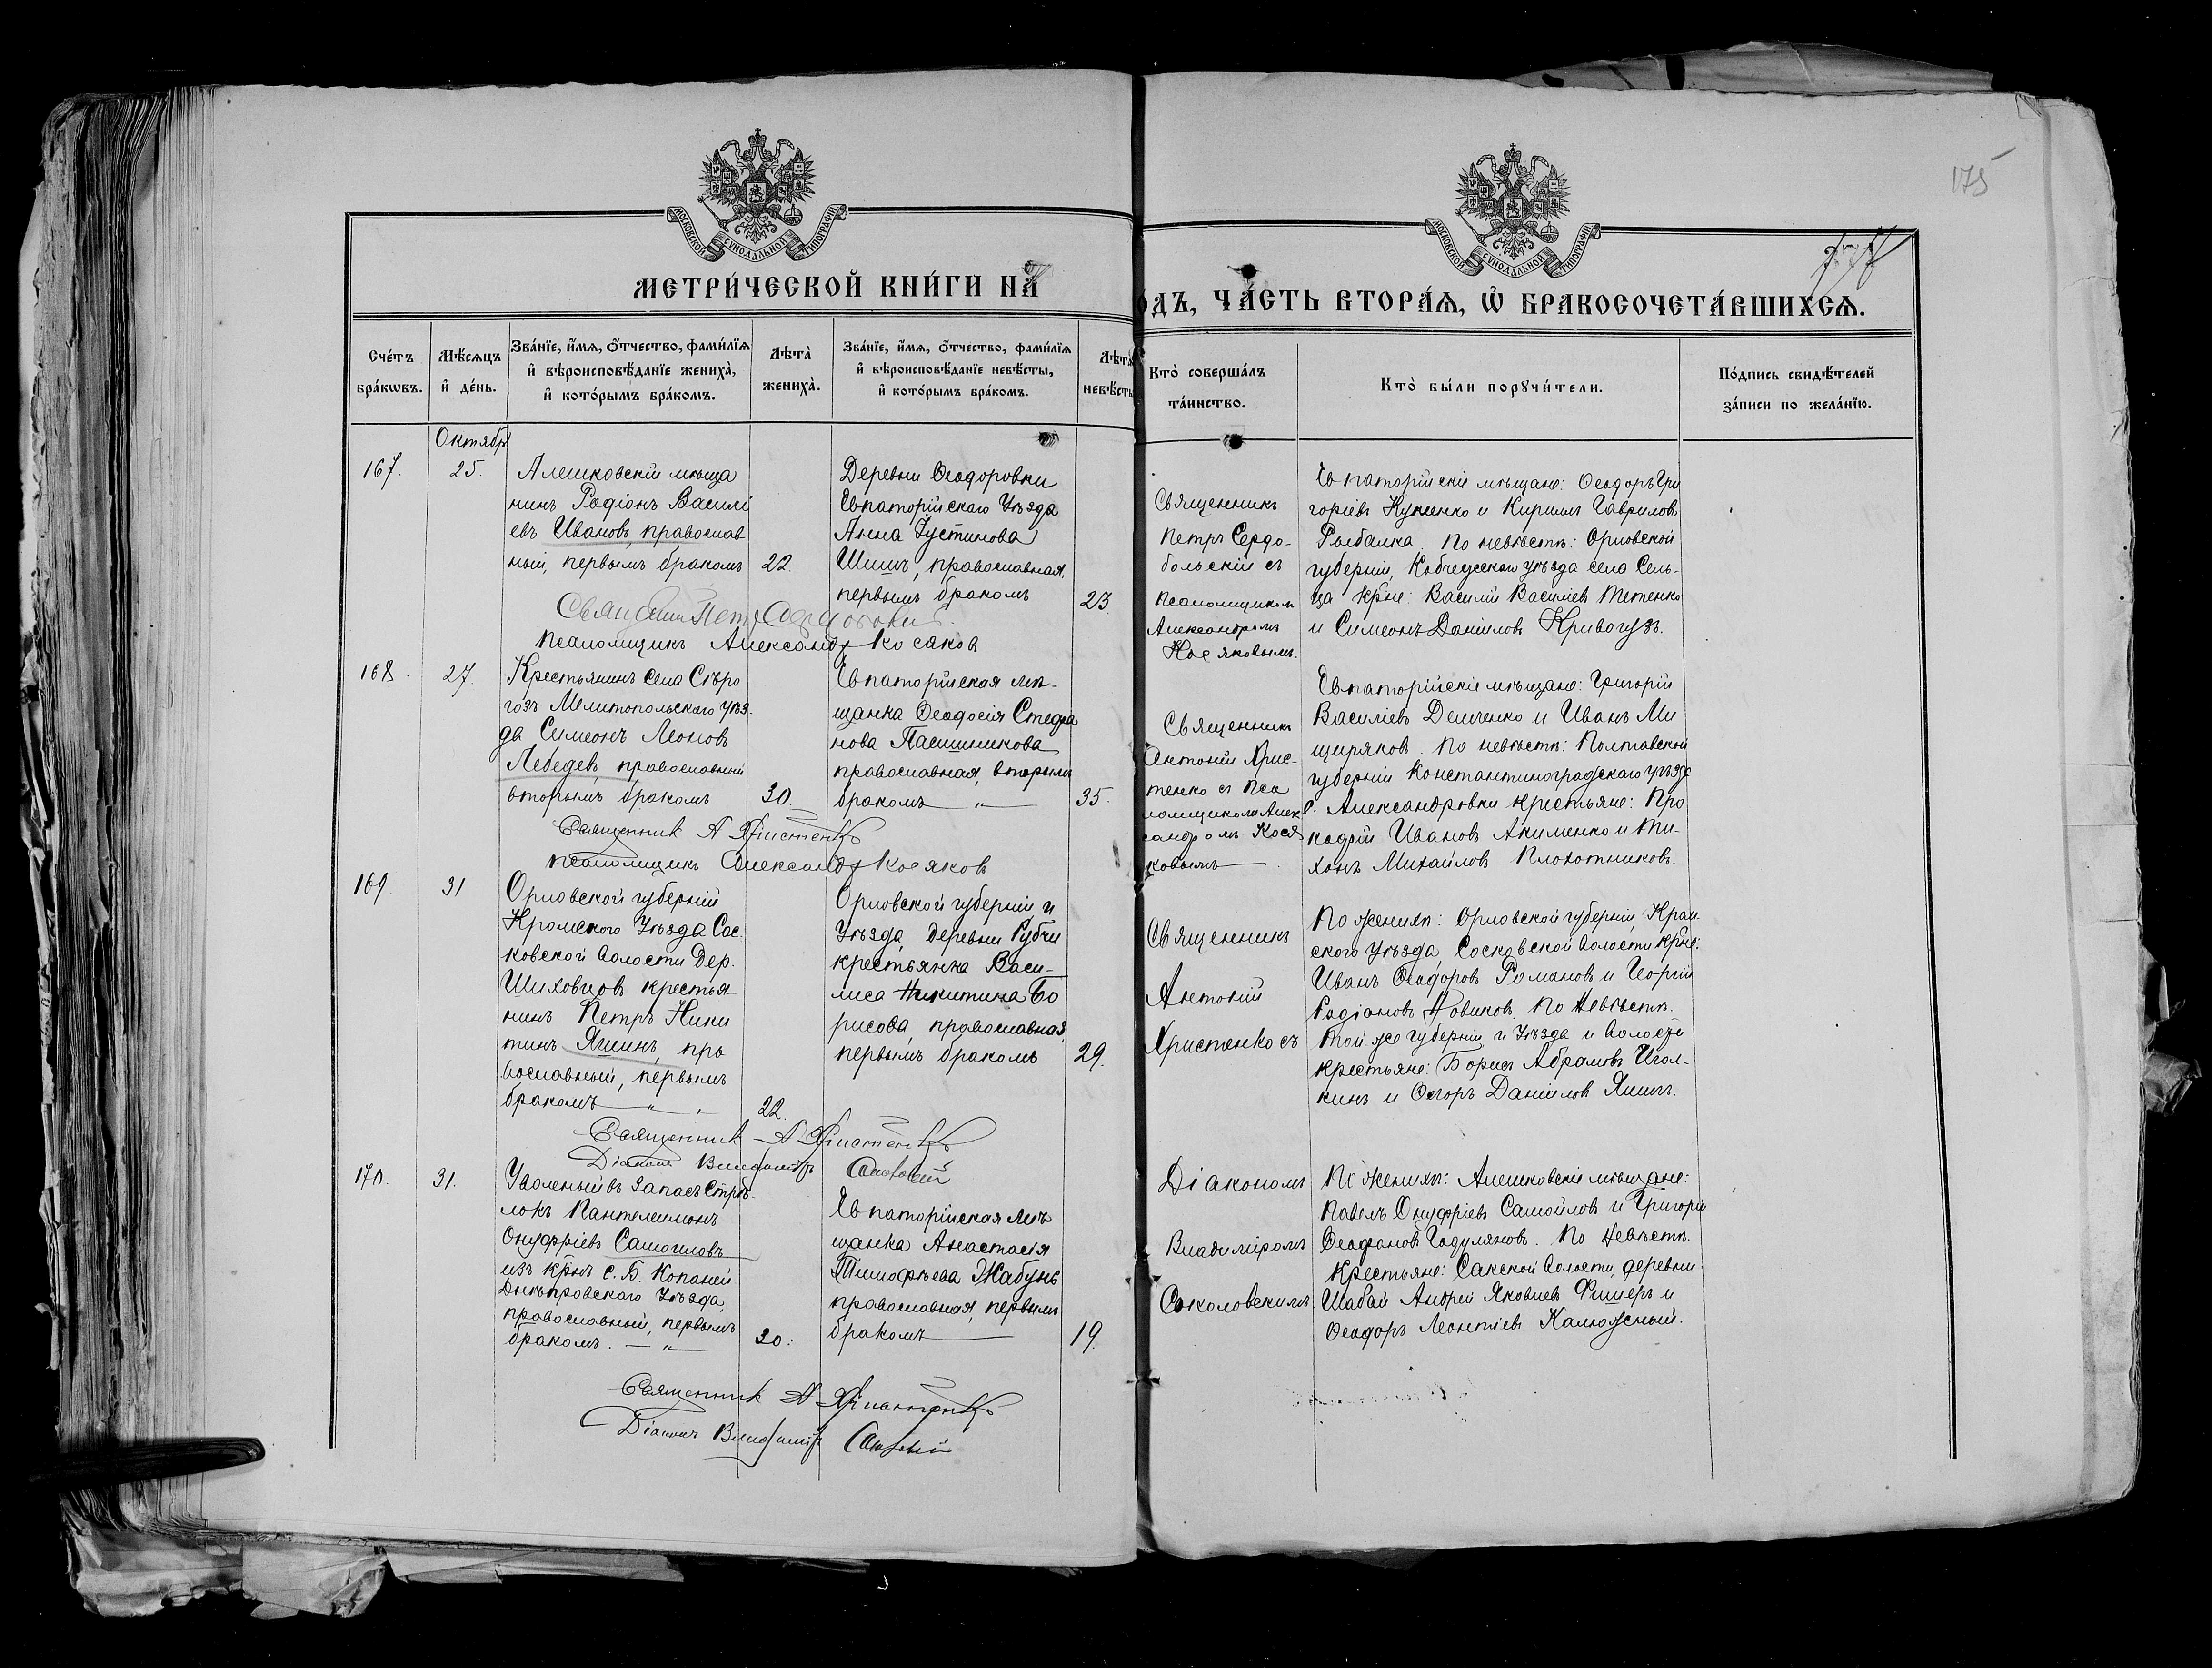 175
МОСКОВСКОЙ СѴНОДАЛЬНОЙ ТИПОГРАФІИ
МОСКОВСКОЙ СѴНОДАЛЬНОЙ ТИПОГРАФІИ
МЕТРИ́ЧЕСКОЙ КНИ́ГИ НА
ОДЪ, ЧА́СТЬ ВТОРА́Ѧ, Ѽ БРАКОСОЧЕТА́ВШИХСѦ.
Сче́тъ бра́кωвъ.
Мѣ́сѧцъ и҆ де́нь.
Зва́нїе, и҆́мѧ, ѻ҆́тчество, фами́лїѧ и҆ вѣроисповѣ́данїе жениха̀, и҆ кото́рымъ бра́комъ.
Лѣта̀ жениха̀.
Зва́нїе, и҆́мѧ, ѻ҆́тчество, фами́лїѧ и҆ вѣроисповѣ́данїе невѣ́сты, и҆ кото́рымъ бра́комъ.
Лѣта̀ невѣ́сты
Кто̀ соверша́лъ та́инство.
Кто̀ бы́ли порꙋчи́тели.
По́дпись свидѣ́телей за́писи по жела́нїю.
Октябрь
167.
25.
Алешковскій мѣща
нинъ Родіонъ Василі
евъ Ивановъ, православ
ный, первымъ бракомъ
22.
Деревни Ѳеодоровки
Евпаторійскаго Уѣзда
Анна Іустинова
Шишъ, православная,
первымъ бракомъ
23.
Священникъ
Петръ Сердо-
больскій съ
Псаломщикомъ
Александромъ
Косяковымъ.
Евпаторійскіе мѣщане: Ѳеодоръ Гри
горіевъ Куценко и Кириллъ Гавриловъ
Рыбалка. По невѣстѣ: Орловской
губерніи, уѣзда села Сель-
ца крне: Василій Василіевъ Тетенко
и Симеонъ Даніиловъ Кривогузъ.
Псаломщикъ Александръ Косяковъ
168.
27.
Крестьянинъ села Сѣро
гозъ Мелитопольскаго уѣз.
да Симеонъ Леоновъ
Лебедевъ православный
вторымъ бракомъ
30.
Евпаторійская мѣ-
щанка Ѳеодосія Стефа
нова Пасшникова
православная, вторымъ
бракомъ — „ —
35.
Священникъ
Антоній Хрис-
тенко съ Пса
ломщикомъ Алек
сандромъ Кося
ковымъ —
Евпаторійскіе мѣщане: Григорій
Василіевъ Демченко и Иванъ Ми
щиряковъ. По невѣстѣ: Полтавской
губерніи Константиноградскаго уѣзда
с. Александровки крестьяне: Про
кофій Ивановъ Акименко и Ти-
хонъ Михайловъ Плохотниковъ.
Священникъ А Христенко
Псаломщикъ Александръ Косяковъ
169.
31
Орловской губерніи
Кромского Уѣзда Сос.
ковской Волости Дер.
Шиховцовъ крестья-
нинъ Петръ Ники
тинъ Яшинъ, пра
вославный, первымъ
бракомъ — „ —
22.
Орловской губерніи и
Уѣзда, деревни Губчи
крестьянка Васи-
лиса Никитина Бо
рисова, православная,
первымъ бракомъ
29.
Священникъ
Антоній
Христенко съ
Діакономъ
Владиміромъ
Соколовскимъ
По женихѣ: Орловской губерніи, Кром.
ского уѣзда, Сосковской Волости крне:
Иванъ Ѳеодоровъ Романовъ и Георгій
Родіановъ Новиковъ. По Невѣстѣ.
той же губерніи, и Уѣзда и Волости
крестьяне: Борисъ Абрамовъ Игол-
кинъ и Егоръ Даніиловъ Яшинъ.
Священникъ А Христенко
Діаконъ Владиміръ
170.
31.
Уволеный въ Запасъ Стрѣ-
локъ Пантелеимонъ
Онуфріевъ Самоиловъ
изъ крнъ с. Б. Копаней
Днѣпровскаго Уѣзда,
православный, первымъ
бракомъ. — „ —
30.
Евпаторійская мѣ
щанка Анастасія
Тимофѣева Жабунь
православная, первымъ
бракомъ —
19.
По женихѣ: Алешковскіе мѣщане:
Павелъ Онуфріевъ Самойловъ и Григорій
Ѳеофановъ Годуляновъ. По Невѣстѣ.
крестьяне: Сакской Волости, деревни
Шабай Андрей Яковлевъ Фишеръ и
Ѳеодоръ Леонтіевъ Калюжный.
Священникъ А Христенко
Діаконъ Владиміръ